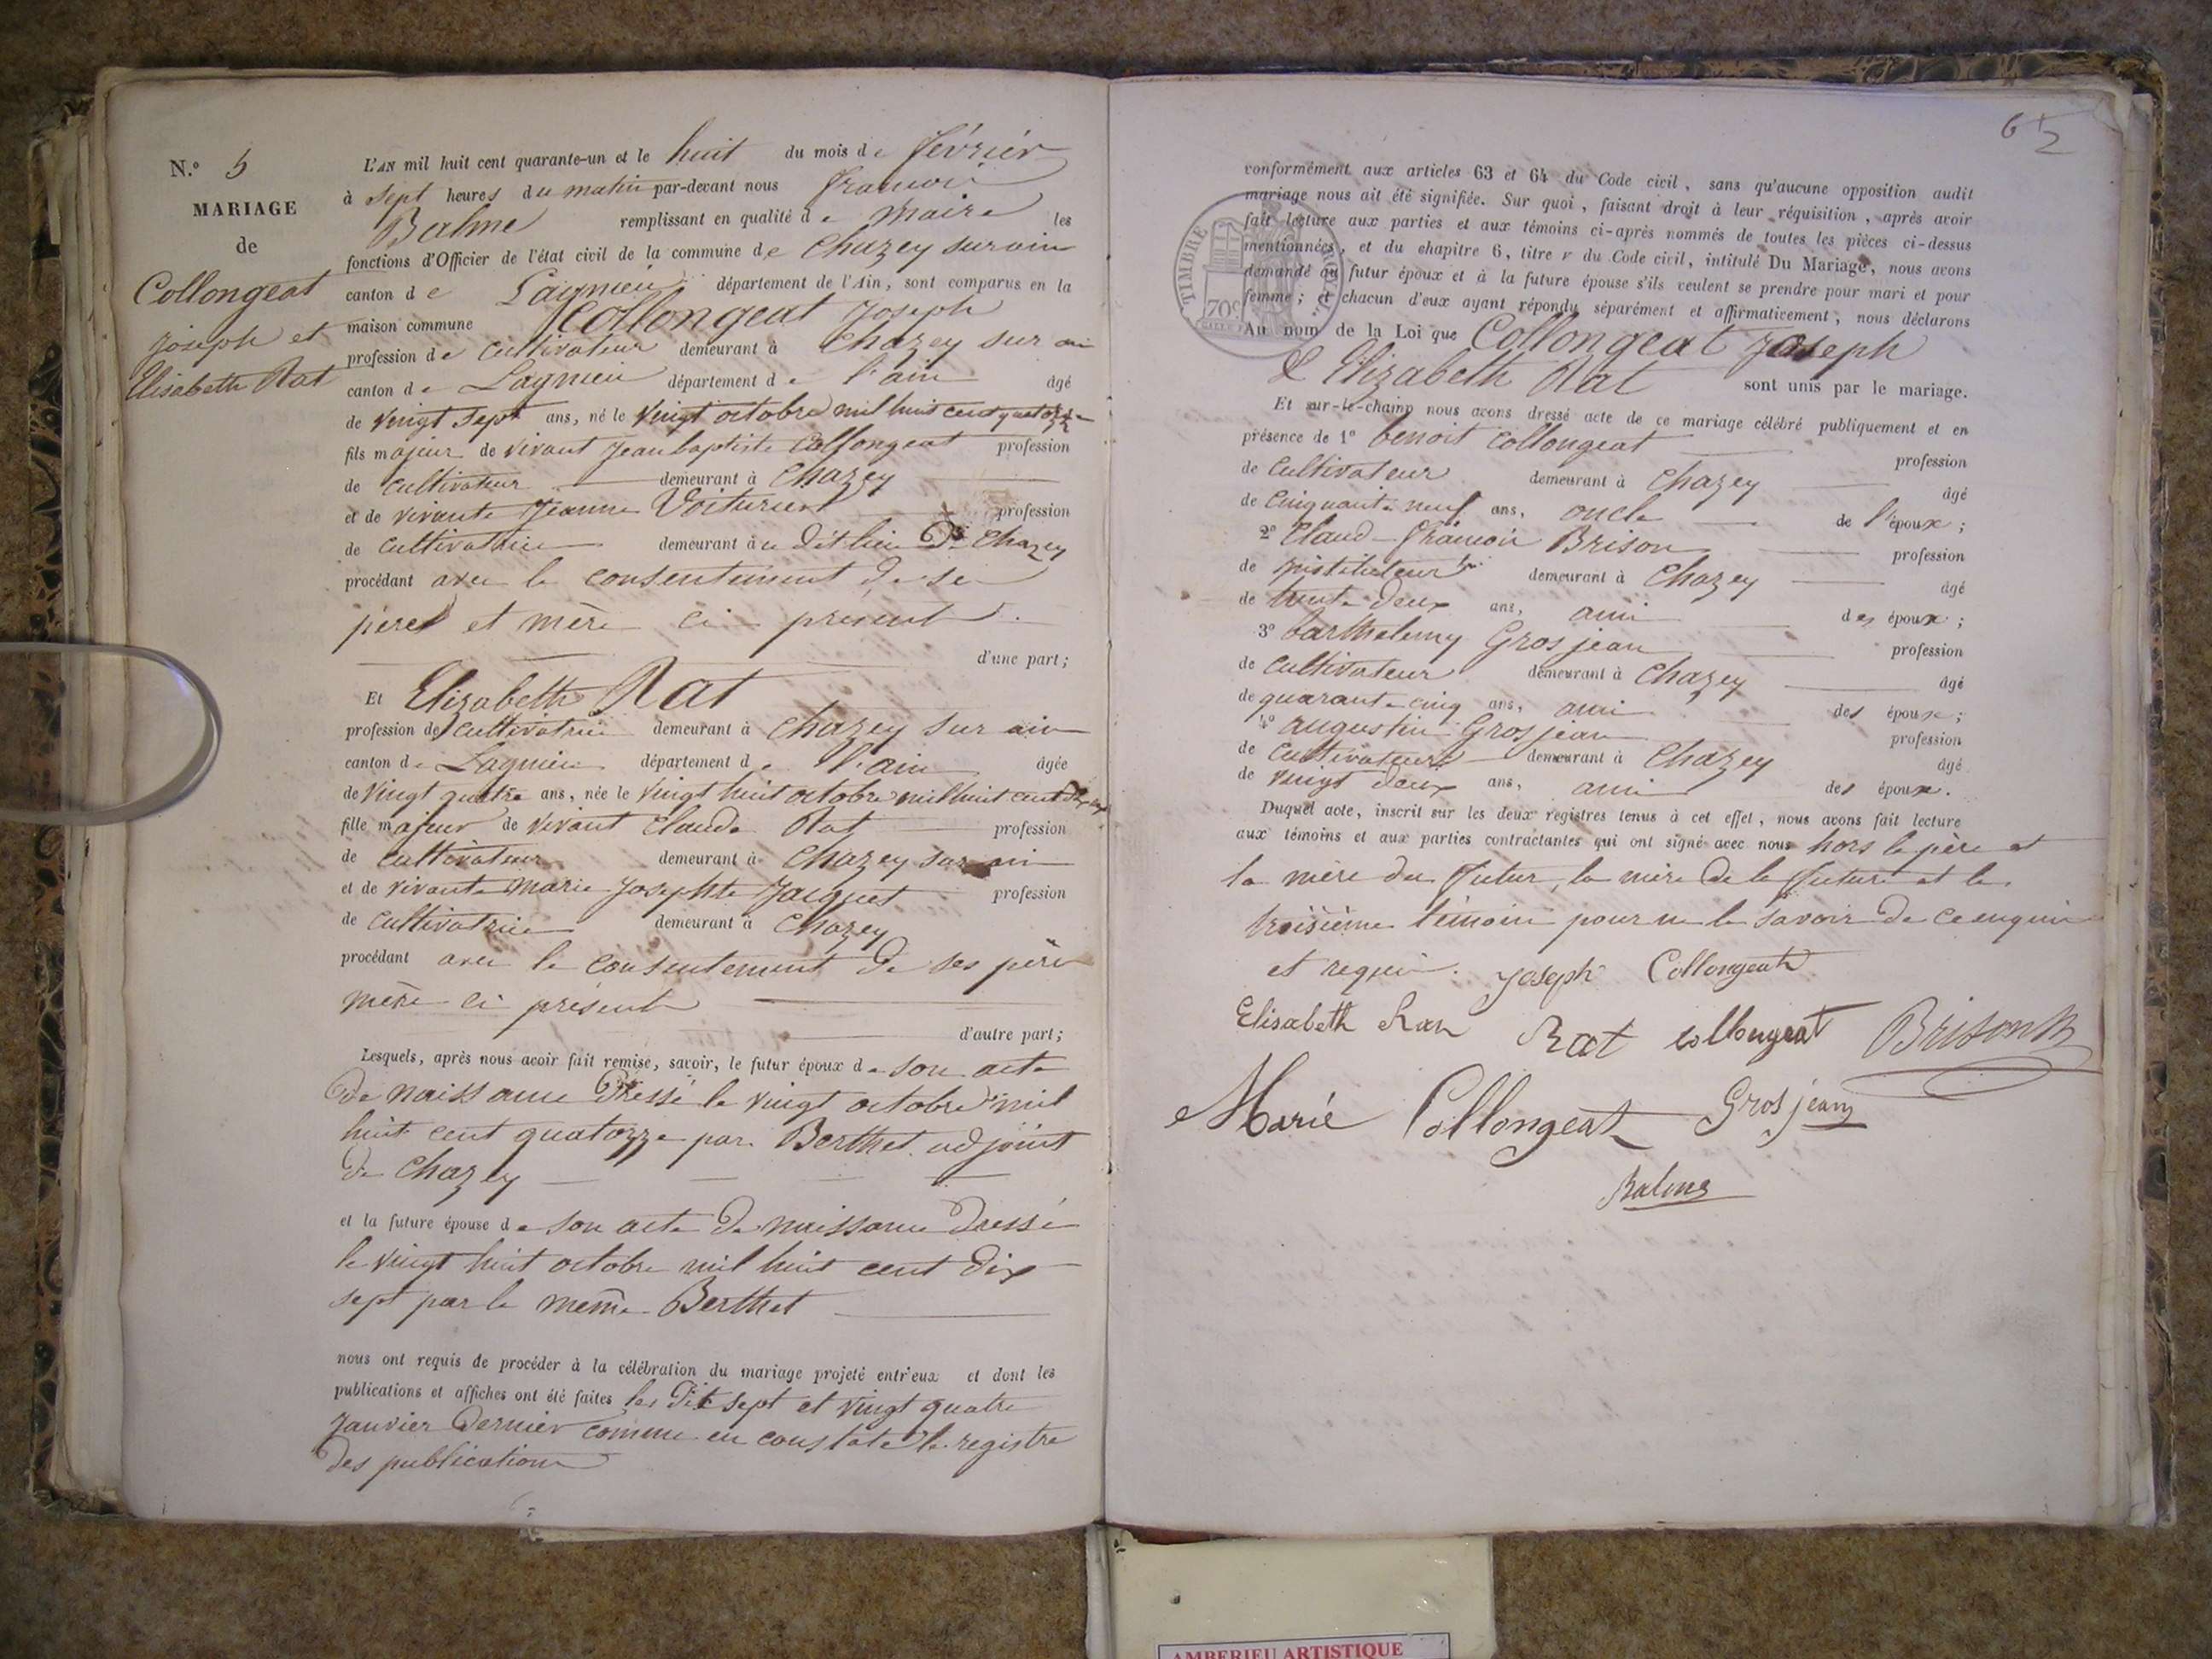 N.º 5
MARIAGE
de
Collongeat
joseph et
Elisabeth Rat
L'AN mil huit cent quarante-un et le huit du mois de février
à sept heures du matin par-devant nous francois
Balme remplissant en qualité de maire les
fonctions d'Officier de l'état civil de la commune de Chazey sur ain
canton de Lagnieu département de l'Ain, sont comparus en la
maison commune Collongeat Joseph
profession de cultivateur demeurant à Chazey sur ain
canton de Lagnieu département de l'ain âgé
de vingt sept ans, né le vingt octobre mil huit cent quatorze
fils majeur de vivant Jean baptiste Collongeat profession
de cultivateur demeurant à Chazey
et de vivante Jeanne Voiturier profession
de cultivatrice demeurant au dit lieu de Chazey
procédant avec le consentement de se
peres et mère ci présent
d'une part;
Et Elizabeth Rat
profession de cultivatrice demeurant à Chazey sur ain
canton de Lagnieu département de l'ain âgée
de vingt quatre ans, née le vingt huit octobre mil huit cent dix sept
fille majeur de vivant Claude Rat profession
de cultivateur demeurant à Chazey sur ain
et de vivante marie Josephte Jacquet profession
de cultivatrice demeurant à Chazey
procédant avec le consentement de ses père
mère ci présent
d'autre part;
Lesquels, après nous avoir fait remise, savoir, le futur époux de son acte
de naissance dressé le vingt octobre mil
huit cent quatorze par Berthet adjoint
de Chazey
et la future épouse de son acte de naissance dressé
le vingt huit octobre mil huit cent dix
sept par le même Berthet
nous ont requis de procéder à la célébration du mariage projeté entr'eux et dont les
publications et affiches ont été faites les dix sept et vingt quatre
Janvier dernier comme en constate le registre
des publications
62
TIMBRE ROYAL
70c
conformément aux articles 63 et 64 du Code civil, sans qu'aucune opposition audit
mariage nous ait été signifiée. Sur quoi, faisant droit à leur réquisition, après avoir
fait lecture aux parties et aux témoins ci-après nommés de toutes les pièces ci-dessus
mentionnées, et du chapitre 6, titre v du Code civil, intitulé Du Mariage, nous avons
demandé au futur époux et à la future épouse s'ils veulent se prendre pour mari et pour
femme; et chacun d'eux ayant répondu séparément et affirmativement, nous déclarons
Au nom de la Loi que Collongeat Joseph
& Elizabeth Rat sont unis par le mariage.
Et sur-le-champ nous avons dressé acte de ce mariage célébré publiquement et en
présence de 1º benoit Collongeat profession
de cultivateur demeurant à Chazey âgé
de cinquante neuf ans, oncle de l'époux;
2º Claud francois Brison profession
de instituteur demeurant à Chazey âgé
de trente deux ans, ami des époux;
3º barthelemy Grosjean profession
de cultivateur demeurant à Chazey âgé
de quarante cinq ans, ami des époux;
4º augustin Grosjean profession
de cultivateur demeurant à Chazey âgé
de vingt deux ans, ami des époux.
Duquel acte, inscrit sur les deux registres tenus à cet effet, nous avons fait lecture
aux témoins et aux parties contractantes qui ont signé avec nous hors le père et
la mère du futur, la mère de la future et le
troisième témoin pour ne le savoir de ce enquis
et requis. Joseph Collongeat
Elisabeth Rat Rat Collongeat Brison
Marie Collongeat Grosjean
Balme
AMBERIEU ARTISTIQUE